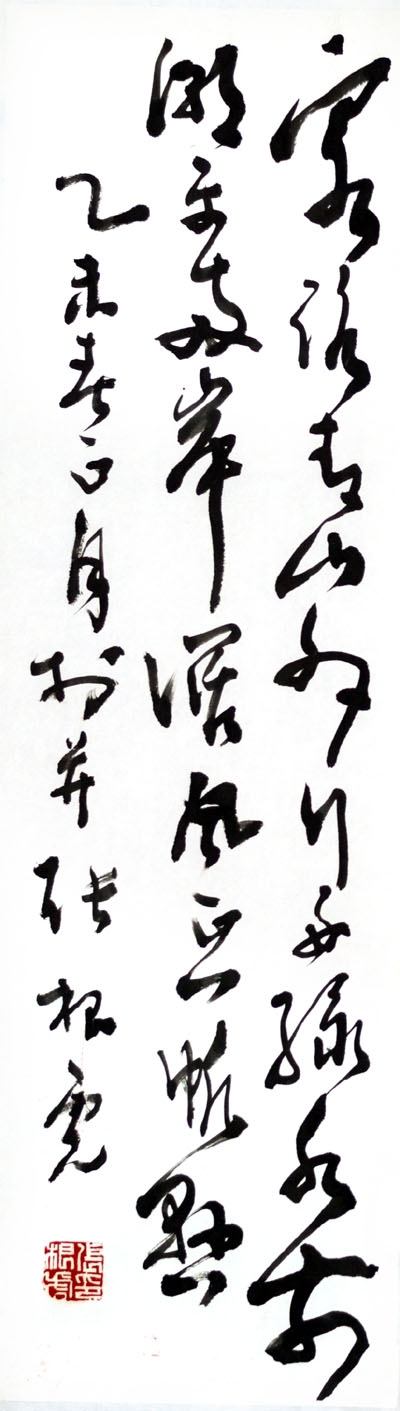 客路青山外行舟綠水前
潮平兩岸闊風正一帆懸
乙未春正月於并張根虎